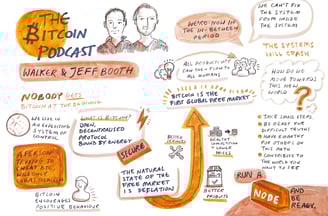 THE
BITCOIN
PODCAST
WALKER & JEFF BOOTH
NOBODY GETS
BITCOIN AT THE BEGINNING
WE LIVE IN
AN EXISTING
SYSTEM OF
CONTROL
A PERSON
TRYING TO
CHEAT BTC
WILL ONLY
BITCOIN
ENCOURAGES
POSITIVE BEHAVIOUR
WHAT IS BITCOIN?
OPEN,
DECENTRALISED
PROTOCOL
BOUND BY ENERGY
SECURE
THE NATURAL
STATE OF THE
FREE MARKET
IS DEFLATION
WE'RE NOW IN
THE IN-BETWEEN
PERIOD
ALL PRODUCTIVITY
CAN THEN FLOW TO
ALL HUMANS
BITCOIN IS THE
FIRST GLOBAL FREE MARKET
BETTER
SERVICES
HEALTHY
COMPETITION
LOWER
PRICES
BETTER
PRODUCTS
WE CAN'T FIX
THE SYSTEM
FROM INSIDE
THE SYSTEM
THE SYSTEMS
WILL CRASH
HOW DO WE
MOVE TOWARDS
THIS NEW
WORLD?
TAKE SMALL STEPS
BE READY FOR
DIFFICULT TRUTHS
HAVE EMPATHY
FOR OTHERS ON
THIS PATH
CONTRIBUTE TO
THE WORLD YOU
WANT TO SEE
RUN A
NODE
AND BE
READY.